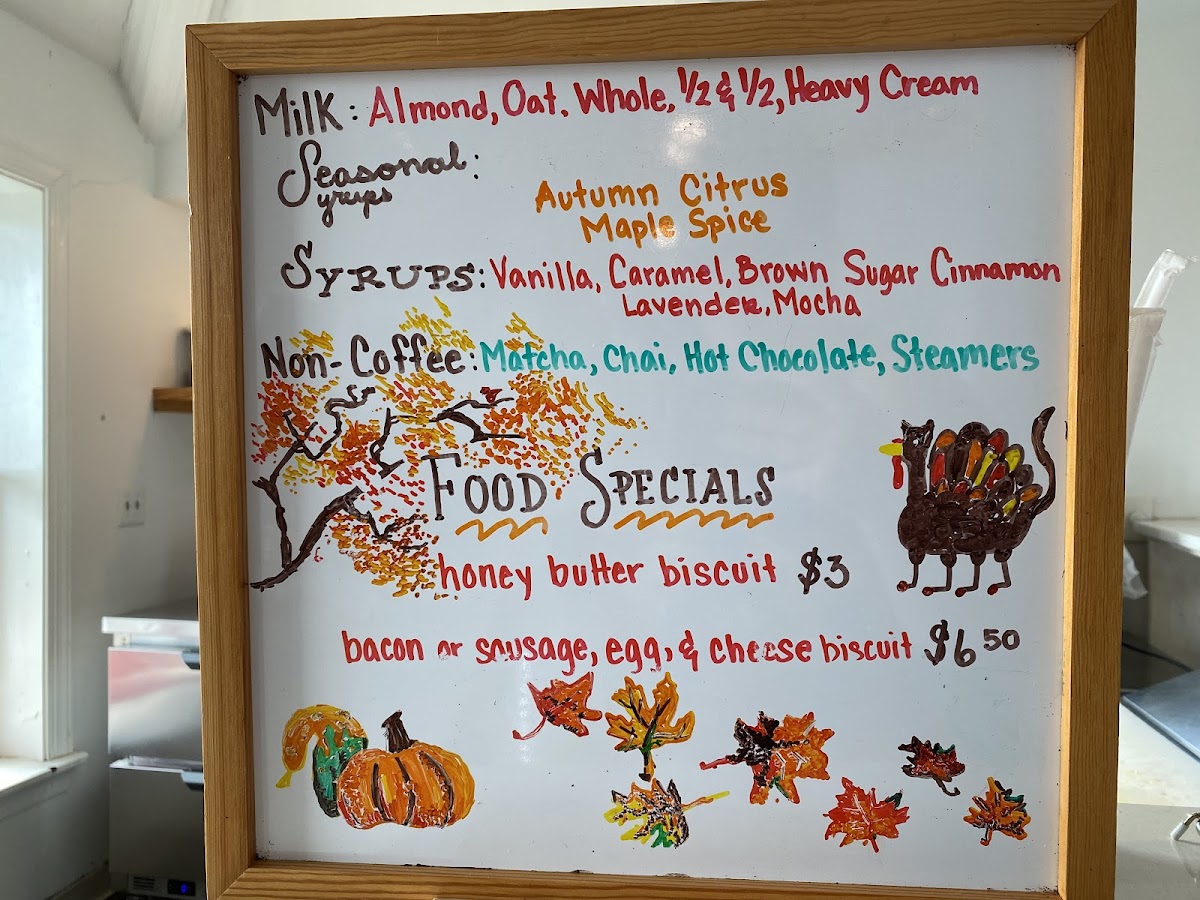 Milk: Almond, Oat, Whole, 1/2 & 1/2, Heavy Cream
Seasonal:
Syrups
Autumn Citrus
Maple Spice
Syrups: Vanilla, Caramel, Brown Sugar Cinnamon
Lavender, Mocha
Non-Coffee: Matcha, Chai, Hot Chocolate, Steamers
Food Specials
honey butter biscuit $3
bacon or sausage, egg, & cheese biscuit $6 50